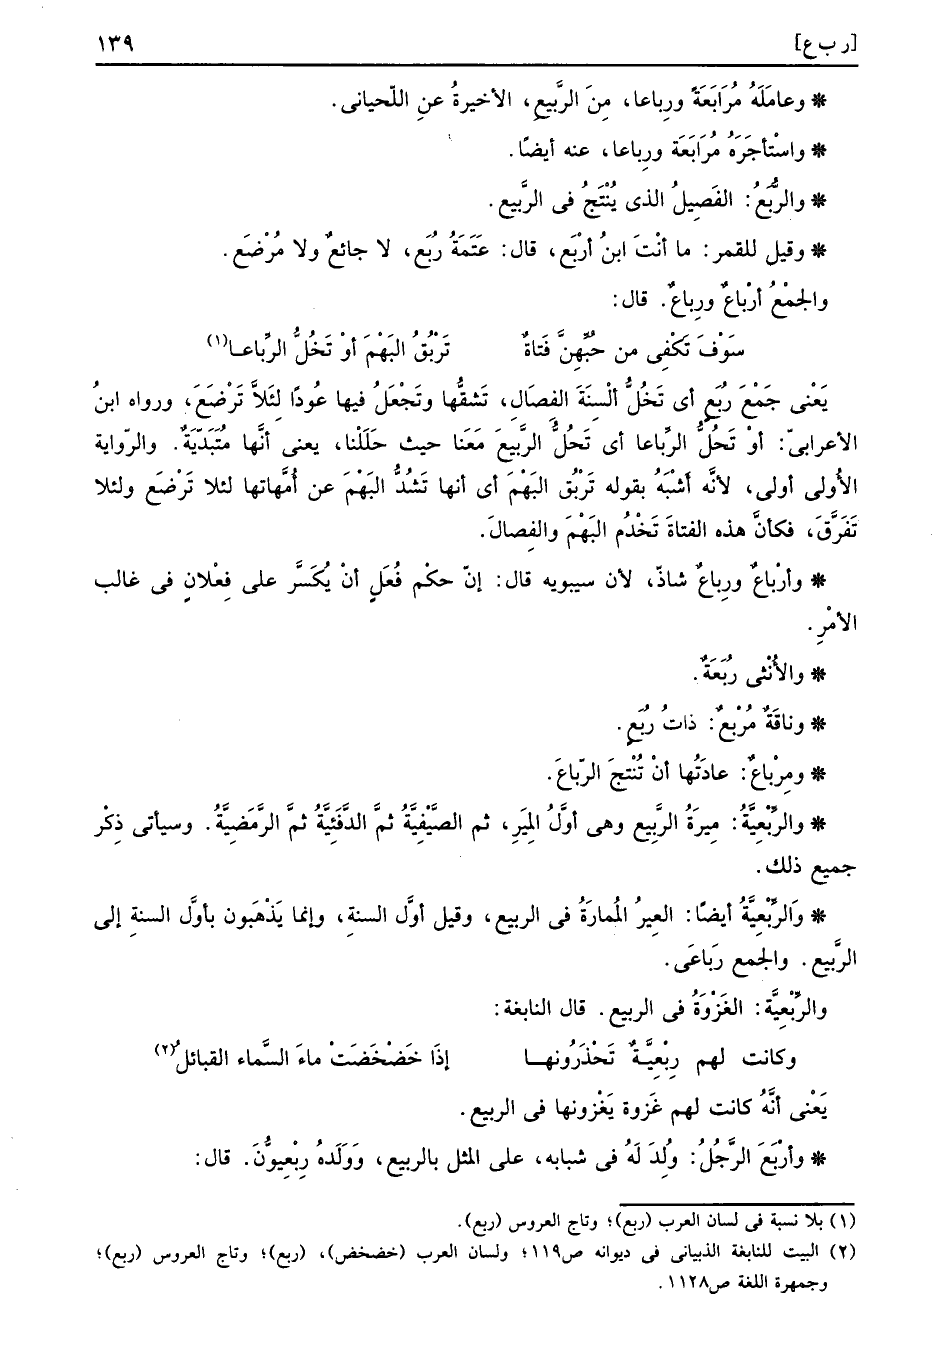 [ر ب ع] ١٣٩
* وعامَلَهُ مُرَابَعَةً ورِباعا، مِنَ الرَّبيعِ، الأخيرةُ عنِ اللّحيانى.
* واسْتأجَرَهُ مُرَابَعَة ورِباعا، عنه أيضًا.
* والرُّبَعُ: الفَصِيلُ الذى يُنْتَجُ فى الرَّبيع.
* وقيل للقمر: ما أنْتَ ابنُ أرْبَع، قال: عَتَمَةُ رُبَع، لا جائعٌ ولا مُرْضَع.
والجمْعُ أرْباعٌ ورِباعٌ. قال:
سَوْفَ تَكْفِى من حُبِّهِنَّ فَتاةٌ تَرْبُقُ البَهْمَ أوْ تَخُلُّ الرِّباعـا(١)
يَعْنى جَمْعَ رُبَعٍ أى تَخُلُّ ألْسِنَةَ الفِصَالِ، تَشقُّها وتَجْعَلُ فيها عُودًا لِئَلاَّ تَرْضَعَ، ورواه ابنُ
الأعرابىّ: أوْ تَحُلُّ الرِّباعا أى تَحُلُّ الرَّبيعَ مَعَنا حيث حَلَلْنا، يعنى أنَّها مُتَبَدّيَةٌ. والرّواية
الأُولى أولى، لأنَّه أشْبَهُ بقوله تَرْبُق البَهْمَ أى أنها تَشُدُّ البَهْمَ عن أمَّهاتها لئلا تَرْضَع ولئلا
تَفَرَّقَ، فكأنَّ هذه الفتاةَ تَخْدُم البَهْمَ والفِصالَ.
* وأرْباعٌ ورِباعٌ شاذّ، لأن سيبويه قال: إنّ حكْم فُعَلٍ أنْ يُكَسَّر على فِعْلانٍ فى غالب
الأمْرِ.
* والأُنْثى رُبَعَةٌ.
* وناقَةٌ مُرْبعٌ: ذاتُ رُبَعٍ.
* ومِرْباعٌ: عادَتُها أنْ تُنْتَجَ الرّباعَ.
* والرِّبْعِيَّةُ: مِيرَةُ الرَّبيع وهى أوَّلُ المِيَرِ، ثم الصَّيْفِيَّةُ ثمَّ الدَّفَئِيَّةُ ثمَّ الرَّمَضِيَّةُ. وسيأتى ذِكْر
جميع ذلك.
* وَالرِّبْعِيَّةُ أيضًا: العيرُ المُمارَةُ فى الربيع، وقيل أوَّل السنةِ، وإنما يَذْهَبون بأول السنة إلى
الرَّبيع. والجمع رَباعَى.
والرِّبْعِيَّة: الغَزْوَةُ فى الربيع. قال النابغة:
وكانت لهم رِبْعِيَّـةٌ تَحْذَرُونهـا إذَا خَضْخَضَتْ ماءَ السَّماء القبائلُ(٢)
يَعْنى أنَّهُ كانت لهم غَزوة يَغْزونها فى الربيع.
* وأرْبَعَ الرَّجُلُ: وُلِدَ لَهُ فى شبابه، على المثل بالربيع، وَوَلَدهُ رِبْعِيوُّنَ. قال:
(١) بلا نسبة فى لسان العرب (ربع)؛ وتاج العروس (ربع).
(٢) البيت للنابغة الذبيانى فى ديوانه ص١١٩؛ ولسان العرب (خضخض)، (ربع)؛ وتاج العروس (ربع)؛
وجمهرة اللغة ص١١٢٨.